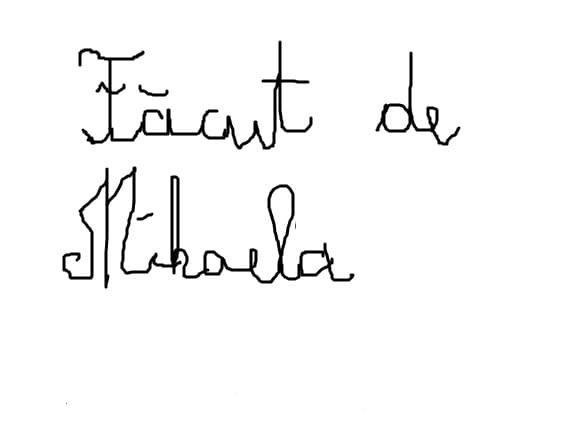 Făcut de
Mihaela